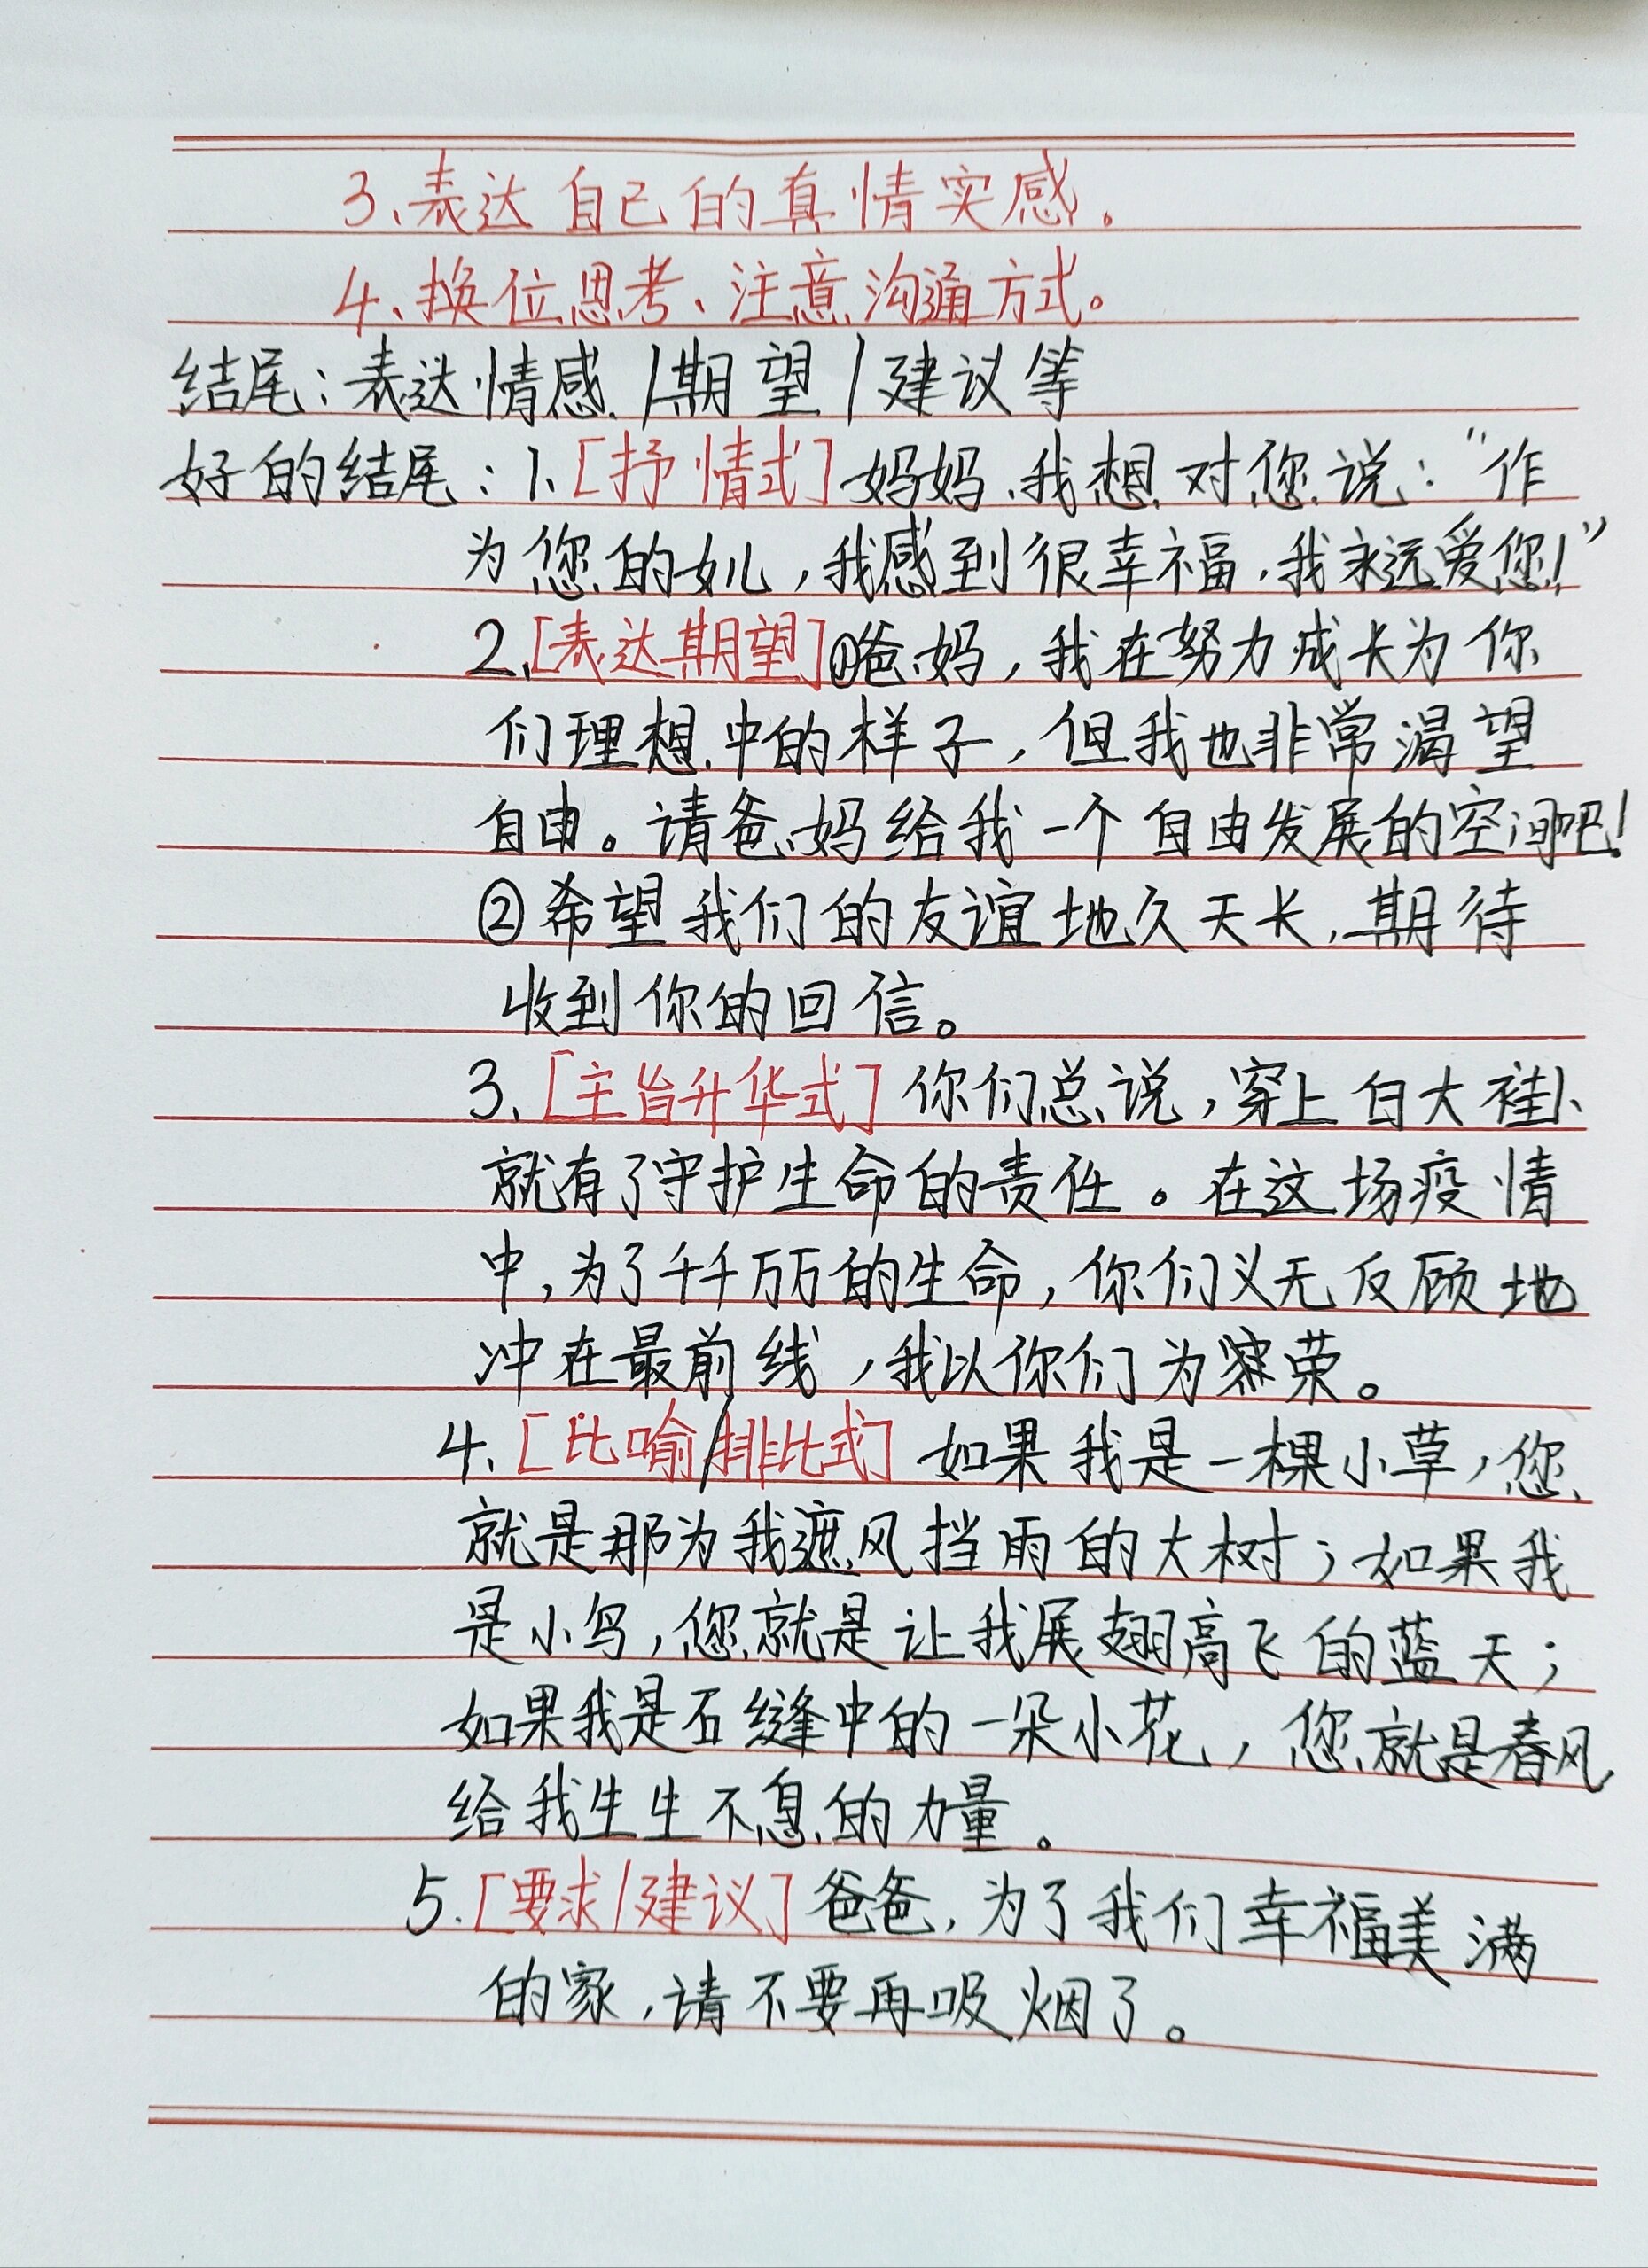 3、表达自己的真情实感。
4、换位思考、注意沟通方式。
结尾:表达情感/期望/建议等
好的结尾:1、[抒情式]妈妈、我想对您说:“作
为您的女儿,我感到很幸福,我永远爱您!”
2、[表达期望]①爸妈,我在努力成长为你
们理想中的样子,但我也非常渴望
自由。请爸妈给我一个自由发展的空间吧!
②希望我们的友谊地久天长,期待
收到你的回信。
3、[主旨升华式]你们总说,穿上白大褂、
就有了守护生命的责任。在这场疫情
中,为了千千万万的生命,你们义无反顾地
冲在最前线,我以你们为荣。
4、[比喻/排比式]如果我是一棵小草,您
就是那为我遮风挡雨的大树;如果我
是小鸟,您就是让我展翅高飞的蓝天;
如果我是石缝中的一朵小花,您就是春风
给我生生不息的力量。
5.[要求/建议]爸爸,为了我们幸福美满
的家,请不要再吸烟了。